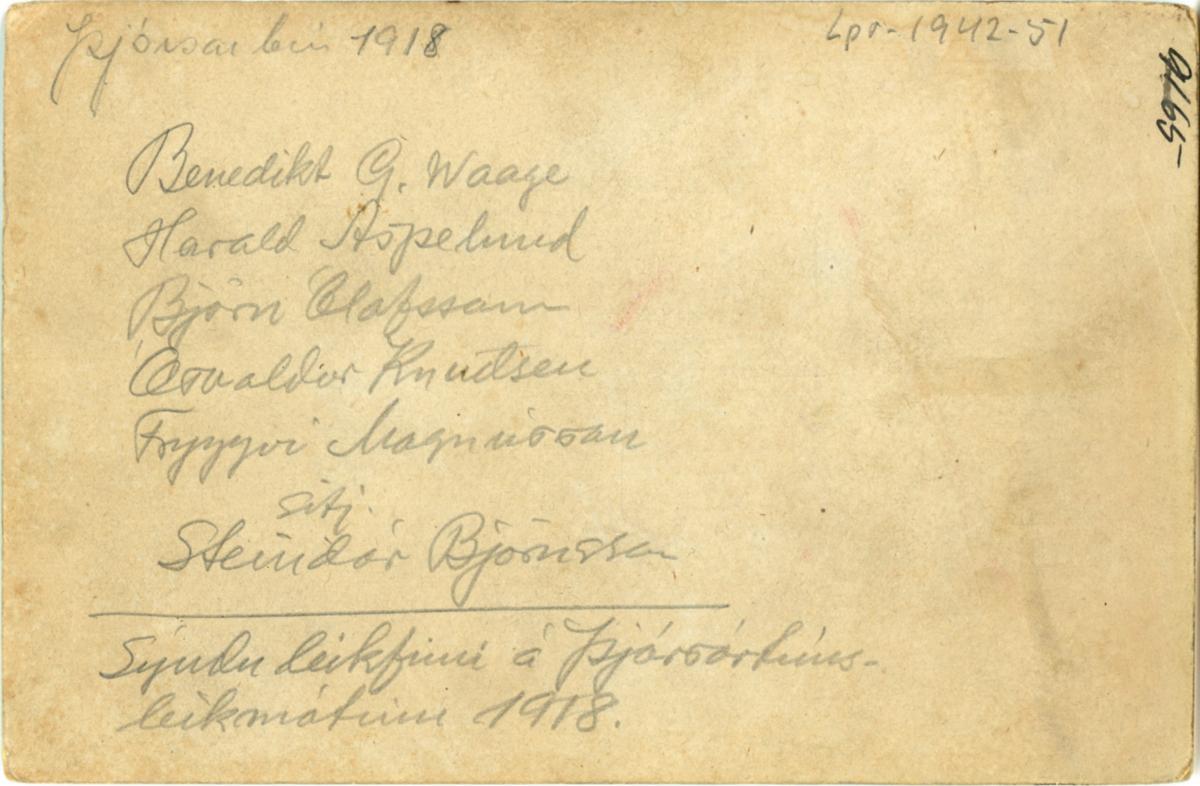 Þjórsártún 1918
Lpr-1942-51
Benedikt G. Waage
Harald Aspelund
Björn Ólafsson
Ósvaldur Knudsen
Tryggvi Magnússon
sitj.
Steindór Björnsson
Sýndu leikfimi á Þjórsártúns-
leikmótinu 1918.